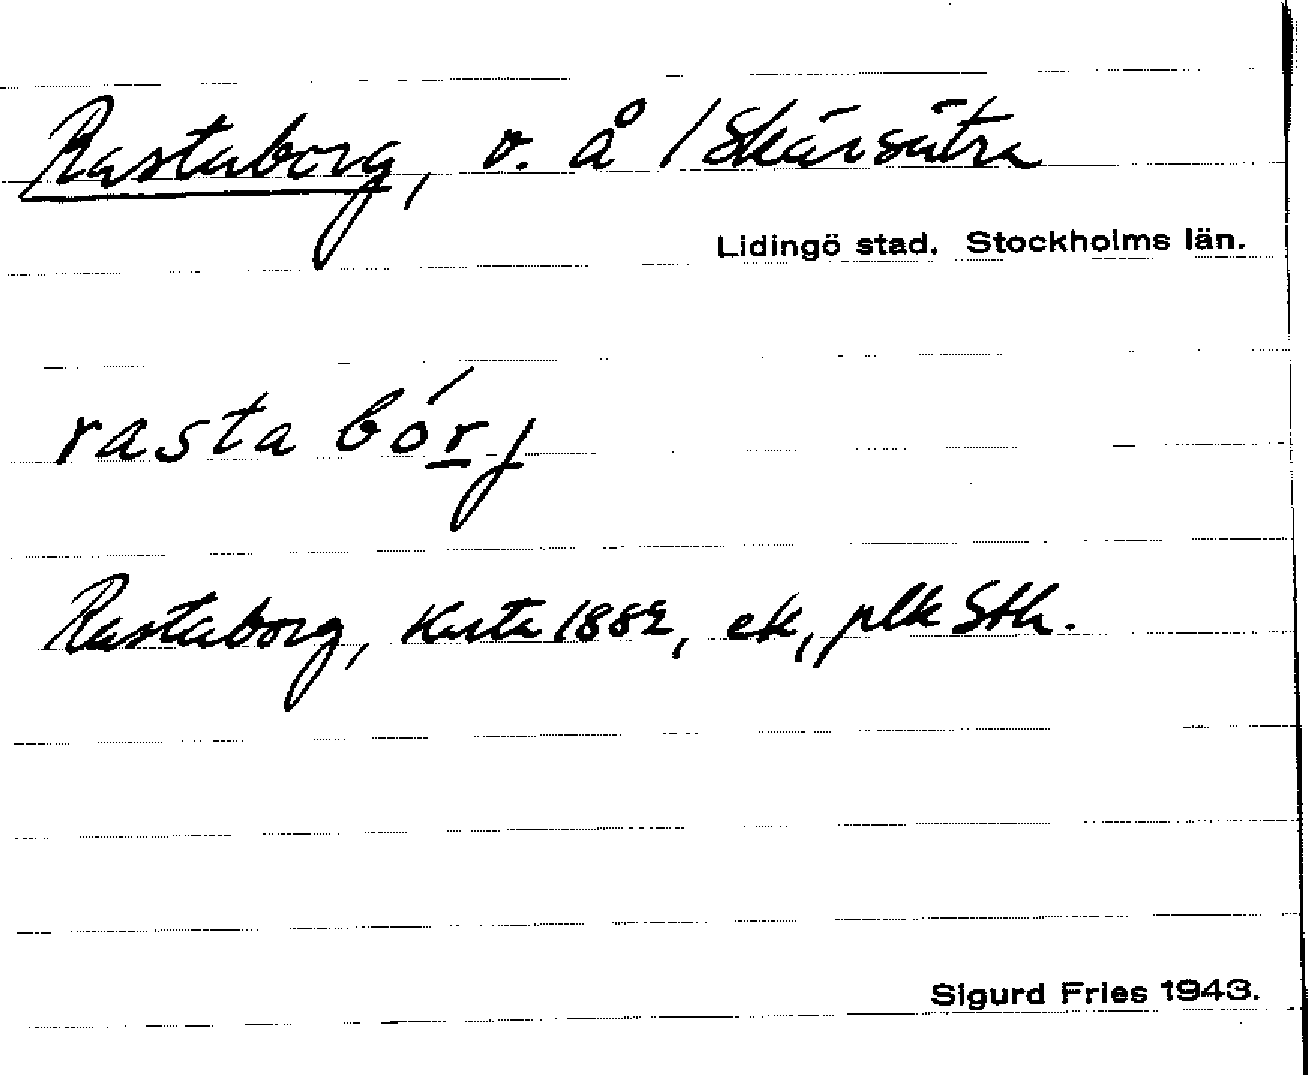 Rastaborg, v. å / Skärsätra
Lidingö stad. Stockholms län.
rasta bórj
Rastaborg, Karta 1882, ek, plk Sth.
Sigurd Fries 1943.